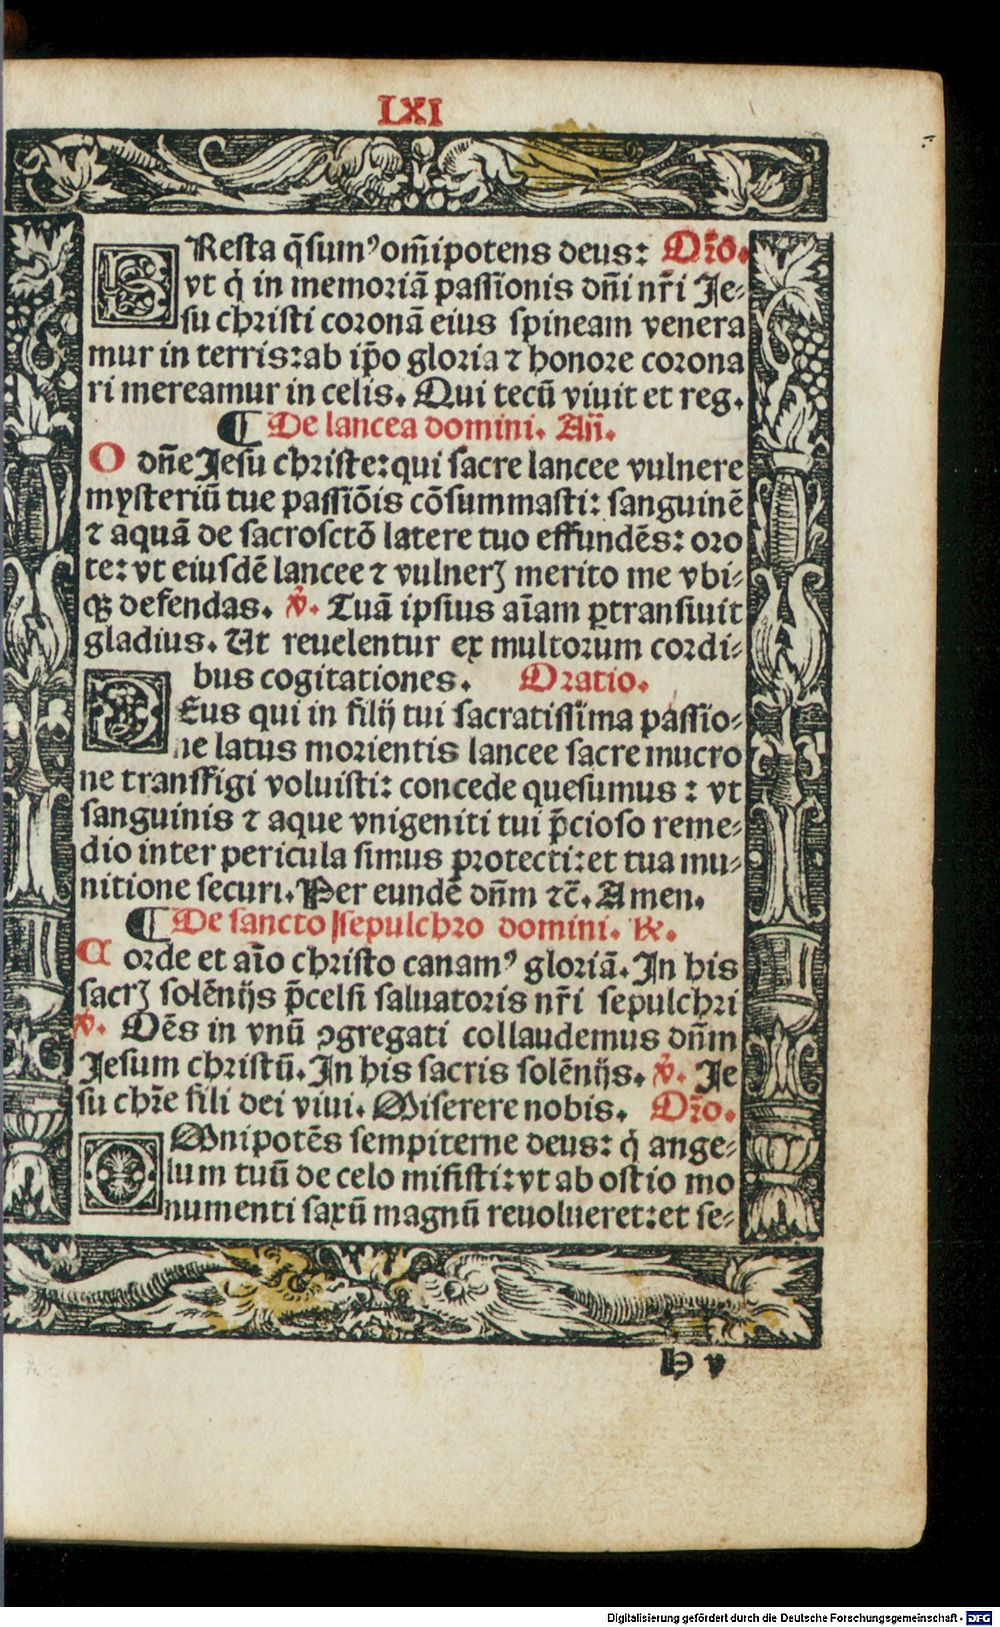 LXI
PResta q̄sumꝰ om̄ipotens deus: Or̄o.
vt q̇ in memoriā passionis dn̄i nr̄i Je⸗
su christi coronā eius spineam venera
mur in terris: ab ip̄o gloria ⁊ honore corona
ri mereamur in celis. Qui tecū viuit et reg.
¶ De lancea domini. An̄.
O dn̄e Jesu christe: qui sacre lancee vulnere
mysteriū tue passiōis cōsummasti: sanguinē
⁊ aquā de sacrosctō latere tuo effundēs: oro
te: vt eiusdē lancee ⁊ vulnerꝭ merito me vbi⸗
qꝫ defendas. ℣. Tuā ipsius aīam ꝑtransiuit
gladius. Ut reuelentur ex multorum cordi⸗
bus cogitationes. Oratio.
DEus qui in filij tui sacratissima passio⸗
ne latus morientis lancee sacre mucro
ne transfigi voluisti: concede quesumus: vt
sanguinis ⁊ aque vnigeniti tui p̄cioso reme⸗
dio inter pericula simus protecti: et tua mu⸗
nitione securi. Per eundē dn̄m ⁊c̄. Amen.
¶ De sancto sepulchro domini. ℟.
Corde et aīo christo canamꝰ gloriā. In his
sacrꝭ solēnijs p̄celsi saluatoris nr̄i sepulchri
℣. Oēs in vnū ꝯgregati collaudemus dn̄m
Jesum christū. In his sacris solēnijs. ℣. Je
su chr̄e fili dei viui. Miserere nobis. Or̄o.
OMnipotēs sempiterne deus: q̇ ange⸗
lum tuū de celo misisti: vt ab ostio mo
numenti saxū magnū reuolueret: et se⸗
H v
Digitalisierung gefördert durch die Deutsche Forschungsgemeinschaft - DFG